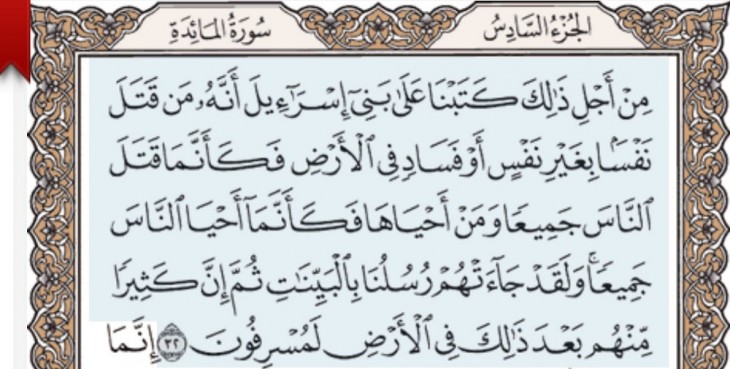 الجُزْءُ السَّادِسُ
سُورَةُ المَائِدَةِ
مِنْ أَجْلِ ذَٰلِكَ كَتَبْنَا عَلَىٰ بَنِىٓ إِسْرَٰٓءِيلَ أَنَّهُۥ مَن قَتَلَ
نَفْسَۢا بِغَيْرِ نَفْسٍ أَوْ فَسَادٍ فِى ٱلْأَرْضِ فَكَأَنَّمَا قَتَلَ
ٱلنَّاسَ جَمِيعًا وَمَنْ أَحْيَاهَا فَكَأَنَّمَآ أَحْيَا ٱلنَّاسَ
جَمِيعًا ۚ وَلَقَدْ جَآءَتْهُمْ رُسُلُنَا بِٱلْبَيِّنَٰتِ ثُمَّ إِنَّ كَثِيرًا
مِّنْهُم بَعْدَ ذَٰلِكَ فِى ٱلْأَرْضِ لَمُسْرِفُونَ ٣٢ إِنَّمَا